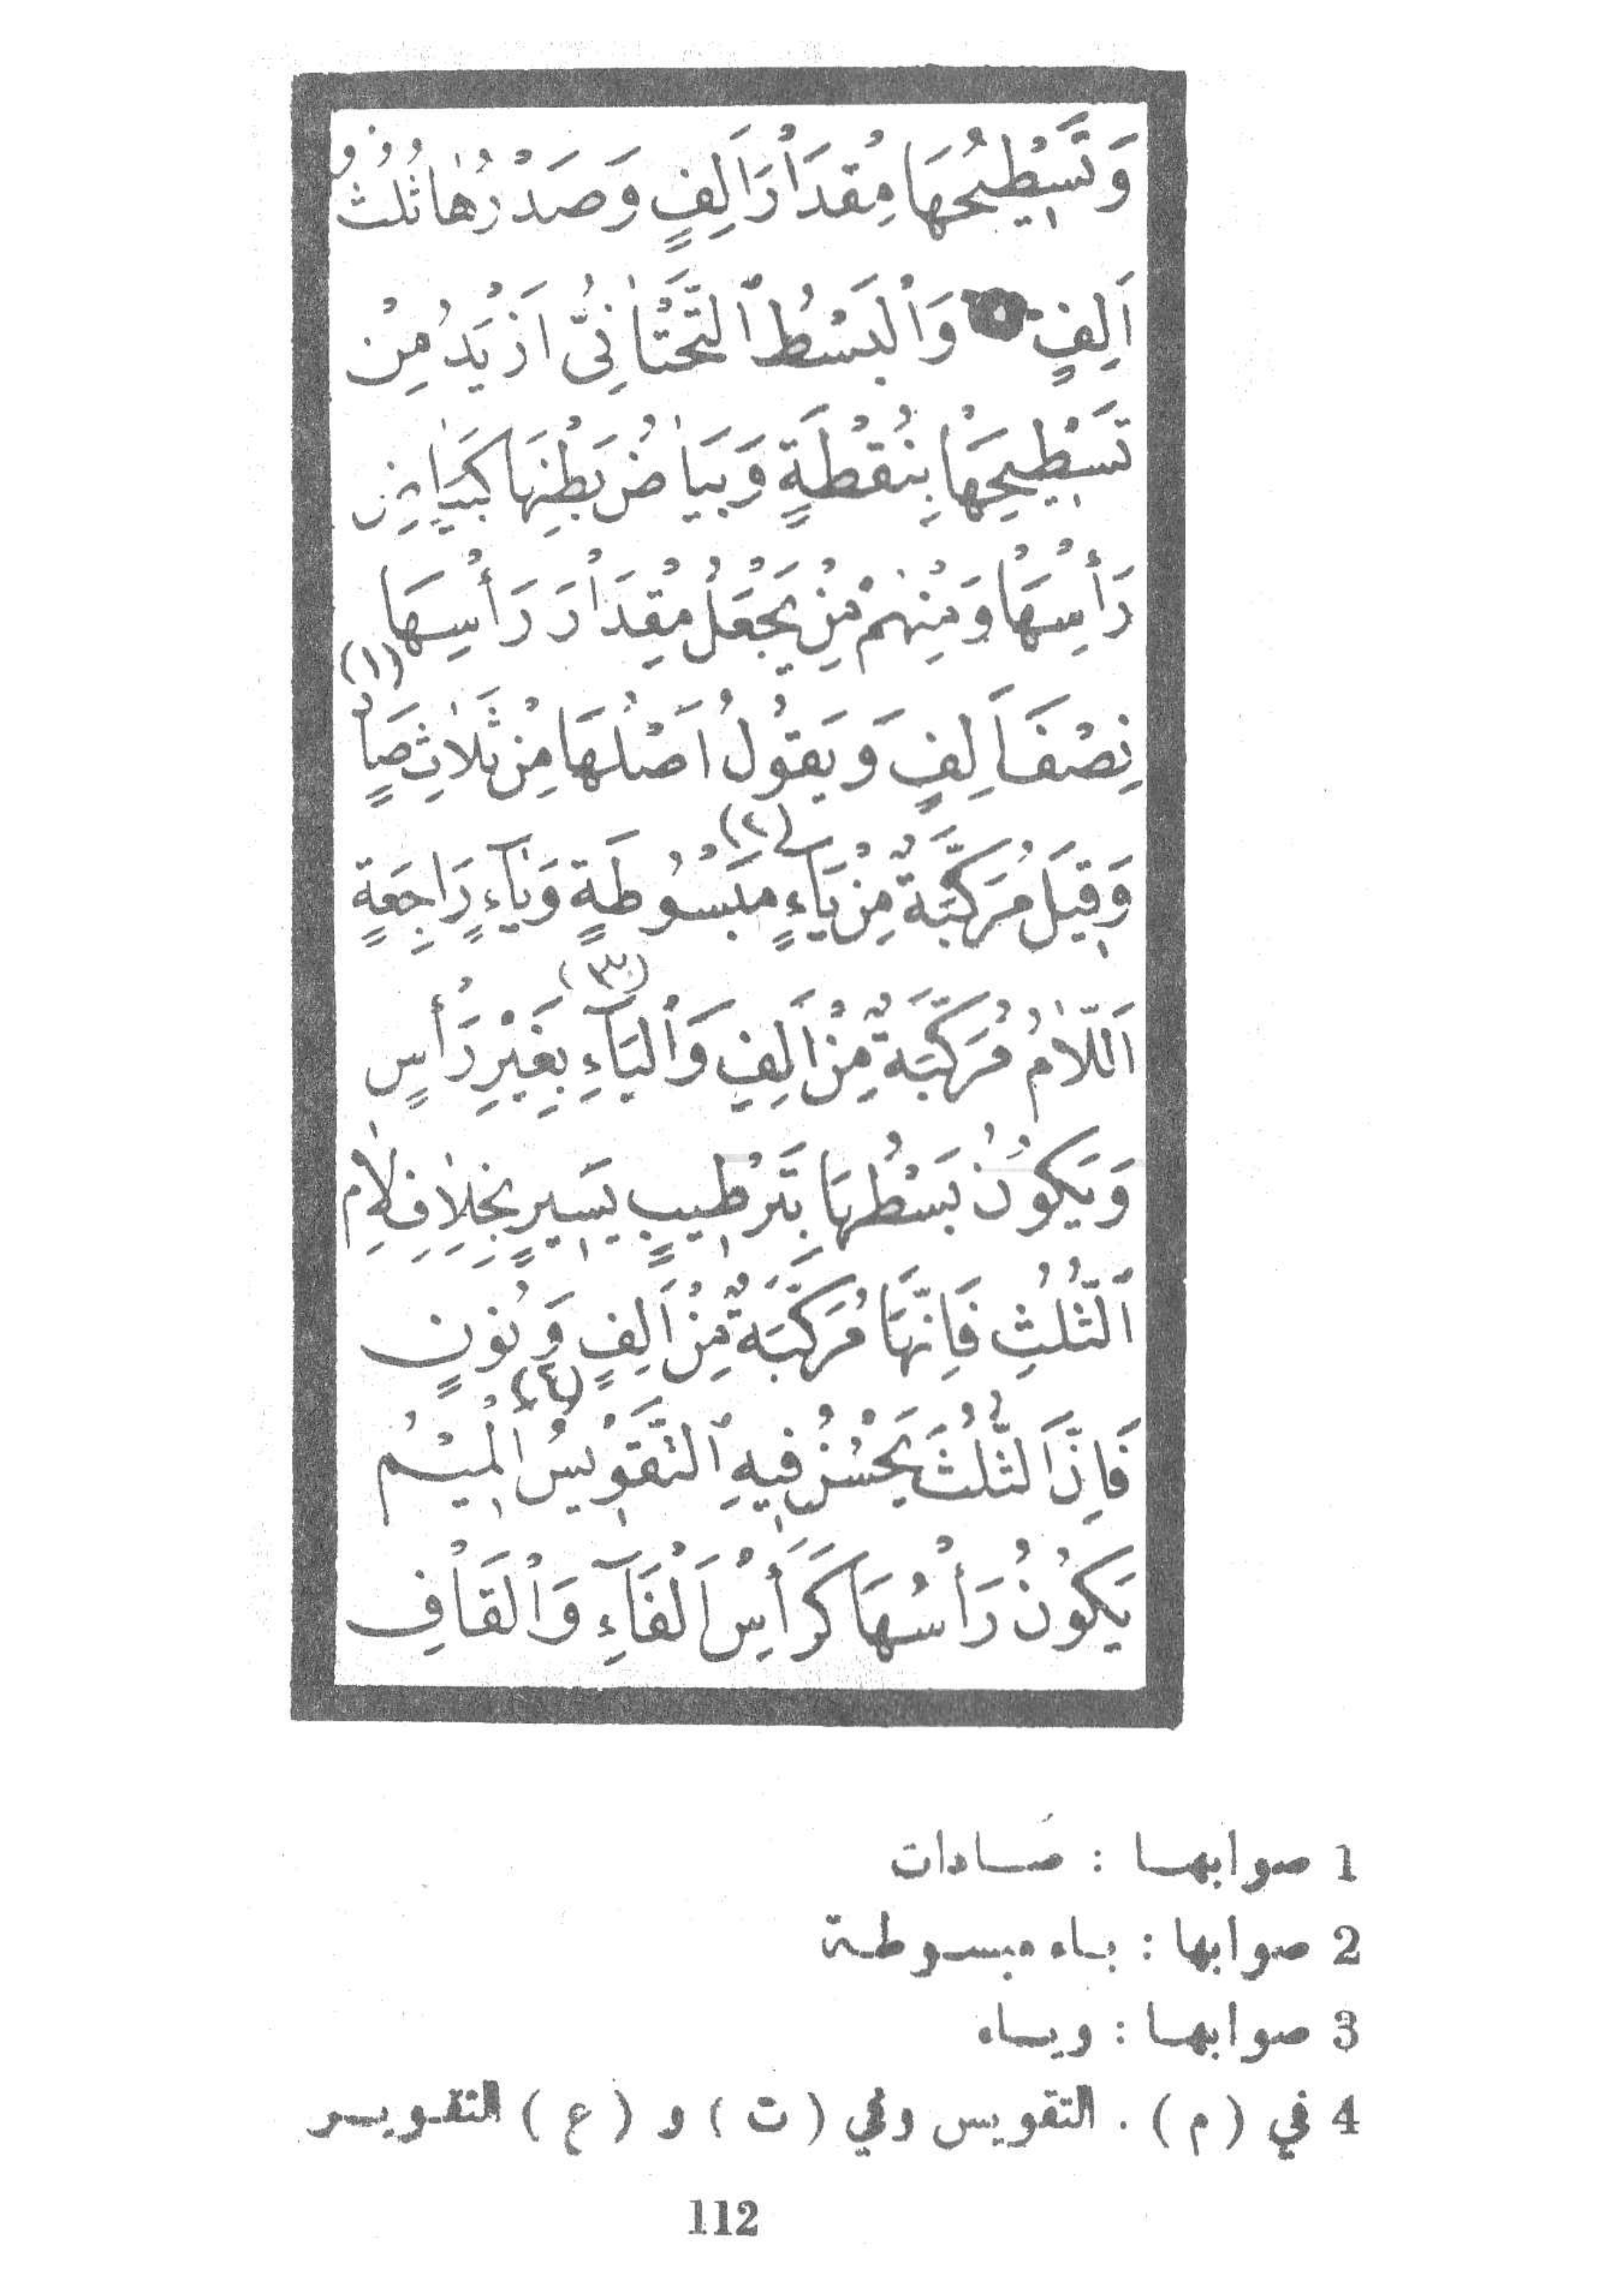 وَتَسْطِيحُهَا مِقْدَارُ اَلِفٍ وَصَدْرُهَا ثُلُثُ
اَلِفٍ وَالْبَسْطُ التَّحْتَانِيُّ اَزْيَدُ مِنْ
تَسْطِيحِهَا بِنُقْطَةٍ وَبَيَاضُ بَطْنِهَا كَبَيَاضِ
رَأْسِهَا وَمِنْهُمْ مَنْ يَجْعَلُ مِقْدَارَ رَأْسِهَا
نِصْفَ اَلِفٍ وَيَقُولُ اَصْلُهَا مِنْ ثَلَاثِ صَادٍ (١)
وَقِيلَ مُرَكَّبَةٌ مِنْ يَاءٍ (٢) مَبْسُوطَةٍ وَيَاءٍ رَاجِعَةٍ
اَللَّامُ مُرَكَّبَةٌ مِنْ اَلِفٍ وَالْيَآءِ (٣) بِغَيْرِ رَأْسٍ
وَيَكُونُ بَسْطُهَا بِتَرْطِيبٍ يَسِيرٍ بِخِلَافِ لَامِ
الثُّلُثِ فَاِنَّهَا مُرَكَّبَةٌ مِنْ اَلِفٍ وَنُونٍ
فَاِنَّ الثُّلُثَ يَحْسُنُ فِيهِ التَّقْوِيسُ (٤) الْمِيمُ
يَكُونُ رَأْسُهَا كَرَأْسِ الْفَآءِ وَالْقَافِ
1 صوابها : صَادات
2 صوابها : باء مبسوطة
3 صوابها : وياء
4 في (م) . التقويس وفي (ت) و (ع) التقوير
112